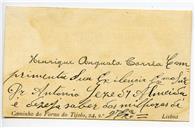 Henrique Augusto Correia Cum
primenta Sua Excelencia o
Dr Antonio José d'Almeida
e deseja saber das melhoras de
Caminho do Forno do Tijolo, 24, 2.º Lisboa